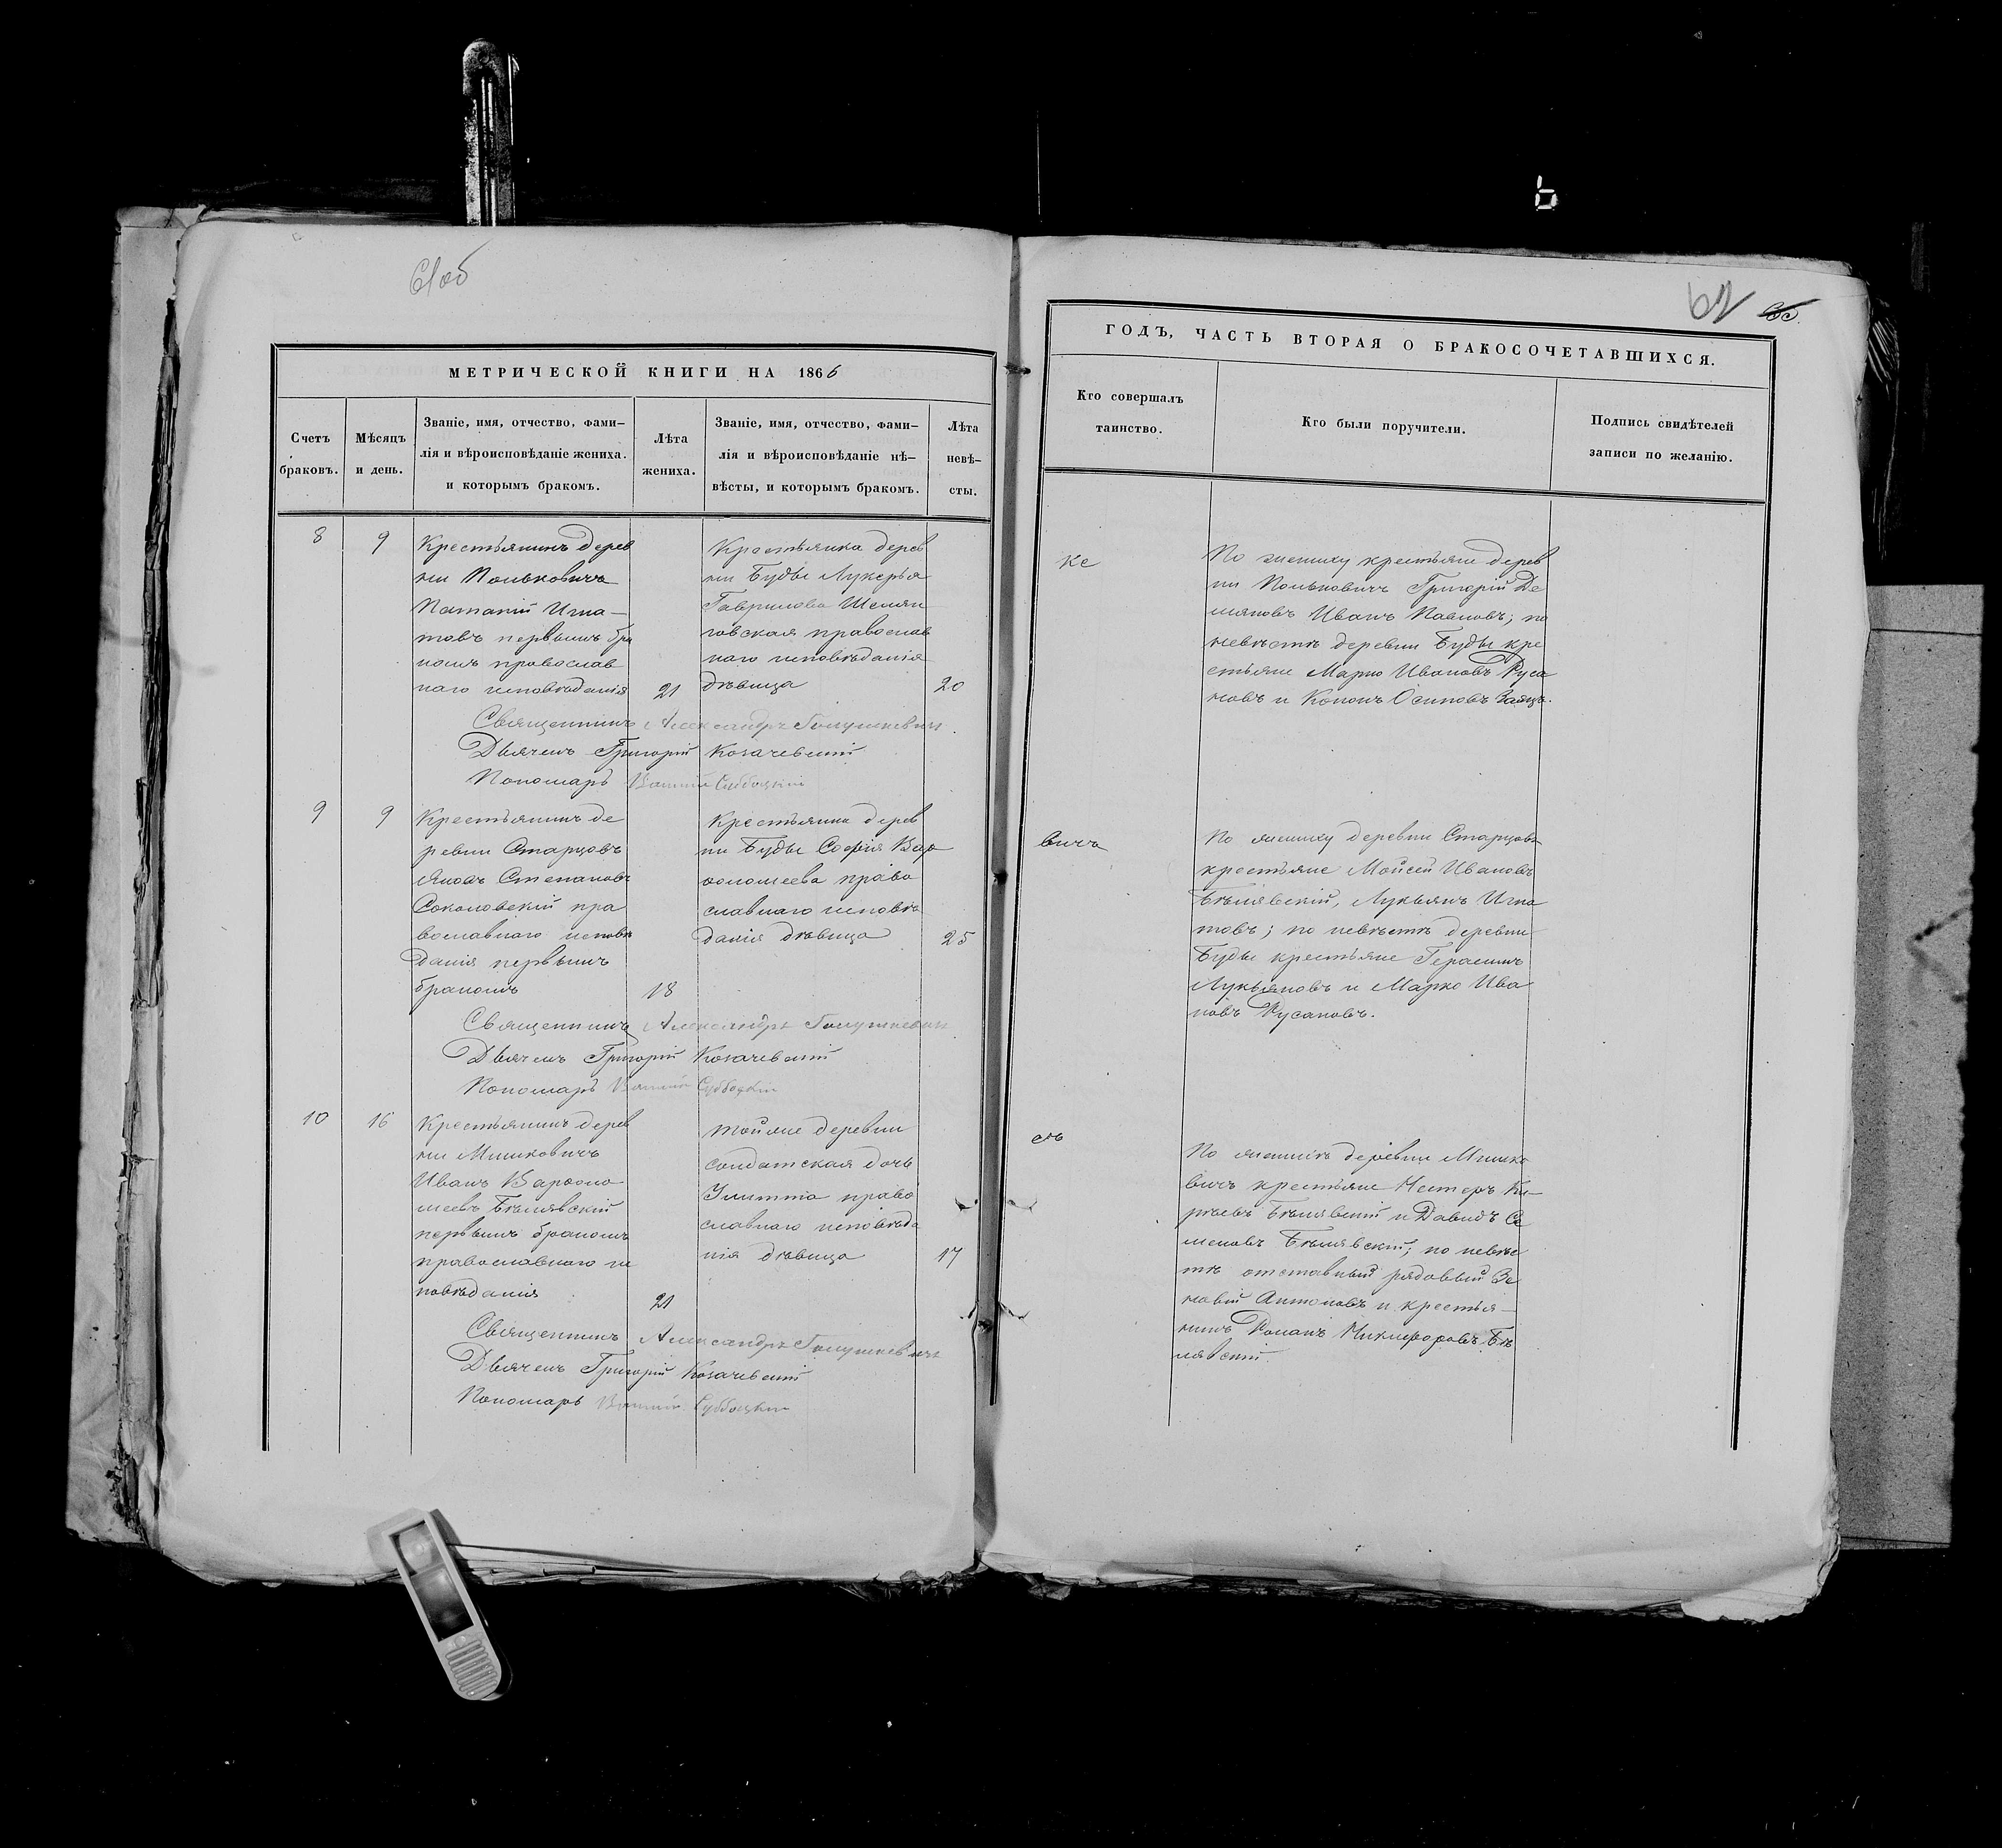 61об
МЕТРИЧЕСКОЙ КНИГИ НА 1866
Счетъ браковъ.
Мѣсяцъ и день.
Званіе, имя, отчество, фами-
лія и вѣроисповѣданіе жениха.
и которымъ бракомъ.
Лѣта жениха.
Званіе, имя, отчество, фами-
лія и вѣроисповѣданіе нѣ-
вѣсты, и которымъ бракомъ.
Лѣта невѣ-
сты.
8
9
Крестьянинъ дерев
ни Поньковичъ
Игна-
товъ первымъ бра
комъ православ
наго исповѣданія
21
Крестьянка дерев
ни Буды Лукерья
Гаврилова
православ
наго исповѣданія
дѣвица
20
Священникъ Александръ
Дьячекъ Григорій Козачевскій
Пономарь Субоцкій
9
9
Крестьянинъ де
ревни Старцовъ
Яковъ Степановъ
Соколовскій пра
вославнаго исповѣ
данія первымъ
бракомъ
18
Крестьянка дерев
ни Буды Софія Вар
ѳоломеева право
славнаго исповѣ
данія дѣвица
25
Священникъ Александръ
Дьячекъ Григорій Козачевскій
Пономарь Субоцкій
10
16
Крестьянинъ дерев
ни Мишковичъ
Иванъ Варѳоло
меевъ Бѣлявскій
первымъ бракомъ
православнаго ис
повѣданія
21
тойже деревни
солдатская дочь
Улитта право
славнаго исповѣда
нія дѣвица
17
Священникъ Александръ
Дьячекъ Григорій Козачевскій
Пономарь Субоцкій
62
ГОДЪ, ЧАСТЬ ВТОРАЯ О БРАКОСОЧЕТАВШИХСЯ.
Кто совершалъ
таинство.
Кто были поручители.
Подпись свидѣтелей
записи по желанію.
же
По жениху крестьяне дерев
ни Поньковичъ Григорій Де
мяновъ Иванъ Павловъ; по
невѣстѣ деревни Буды кре
стьяне Марко Ивановъ Руса
новъ и Кононъ Осиповъ Заяцъ.
По жениху деревни Старцовъ
крестьяне Мойсей Ивановъ
Бѣлявскій, Лукьянъ Игна
товъ; по невѣстѣ деревни
Буды крестьяне Герасимъ
Лукьяновъ и Марко Ива
новъ Русановъ.
По женихѣ деревни Мишко
вичъ крестьяне Нестеръ Ки-
рѣевъ Бѣлявскій и Давидъ Се
меновъ Бѣлявскій; по невѣс
тѣ отставный рядовый Зе
новій Антоновъ и крестья-
нинъ Романъ Никифоровъ Бѣ
лявскій.